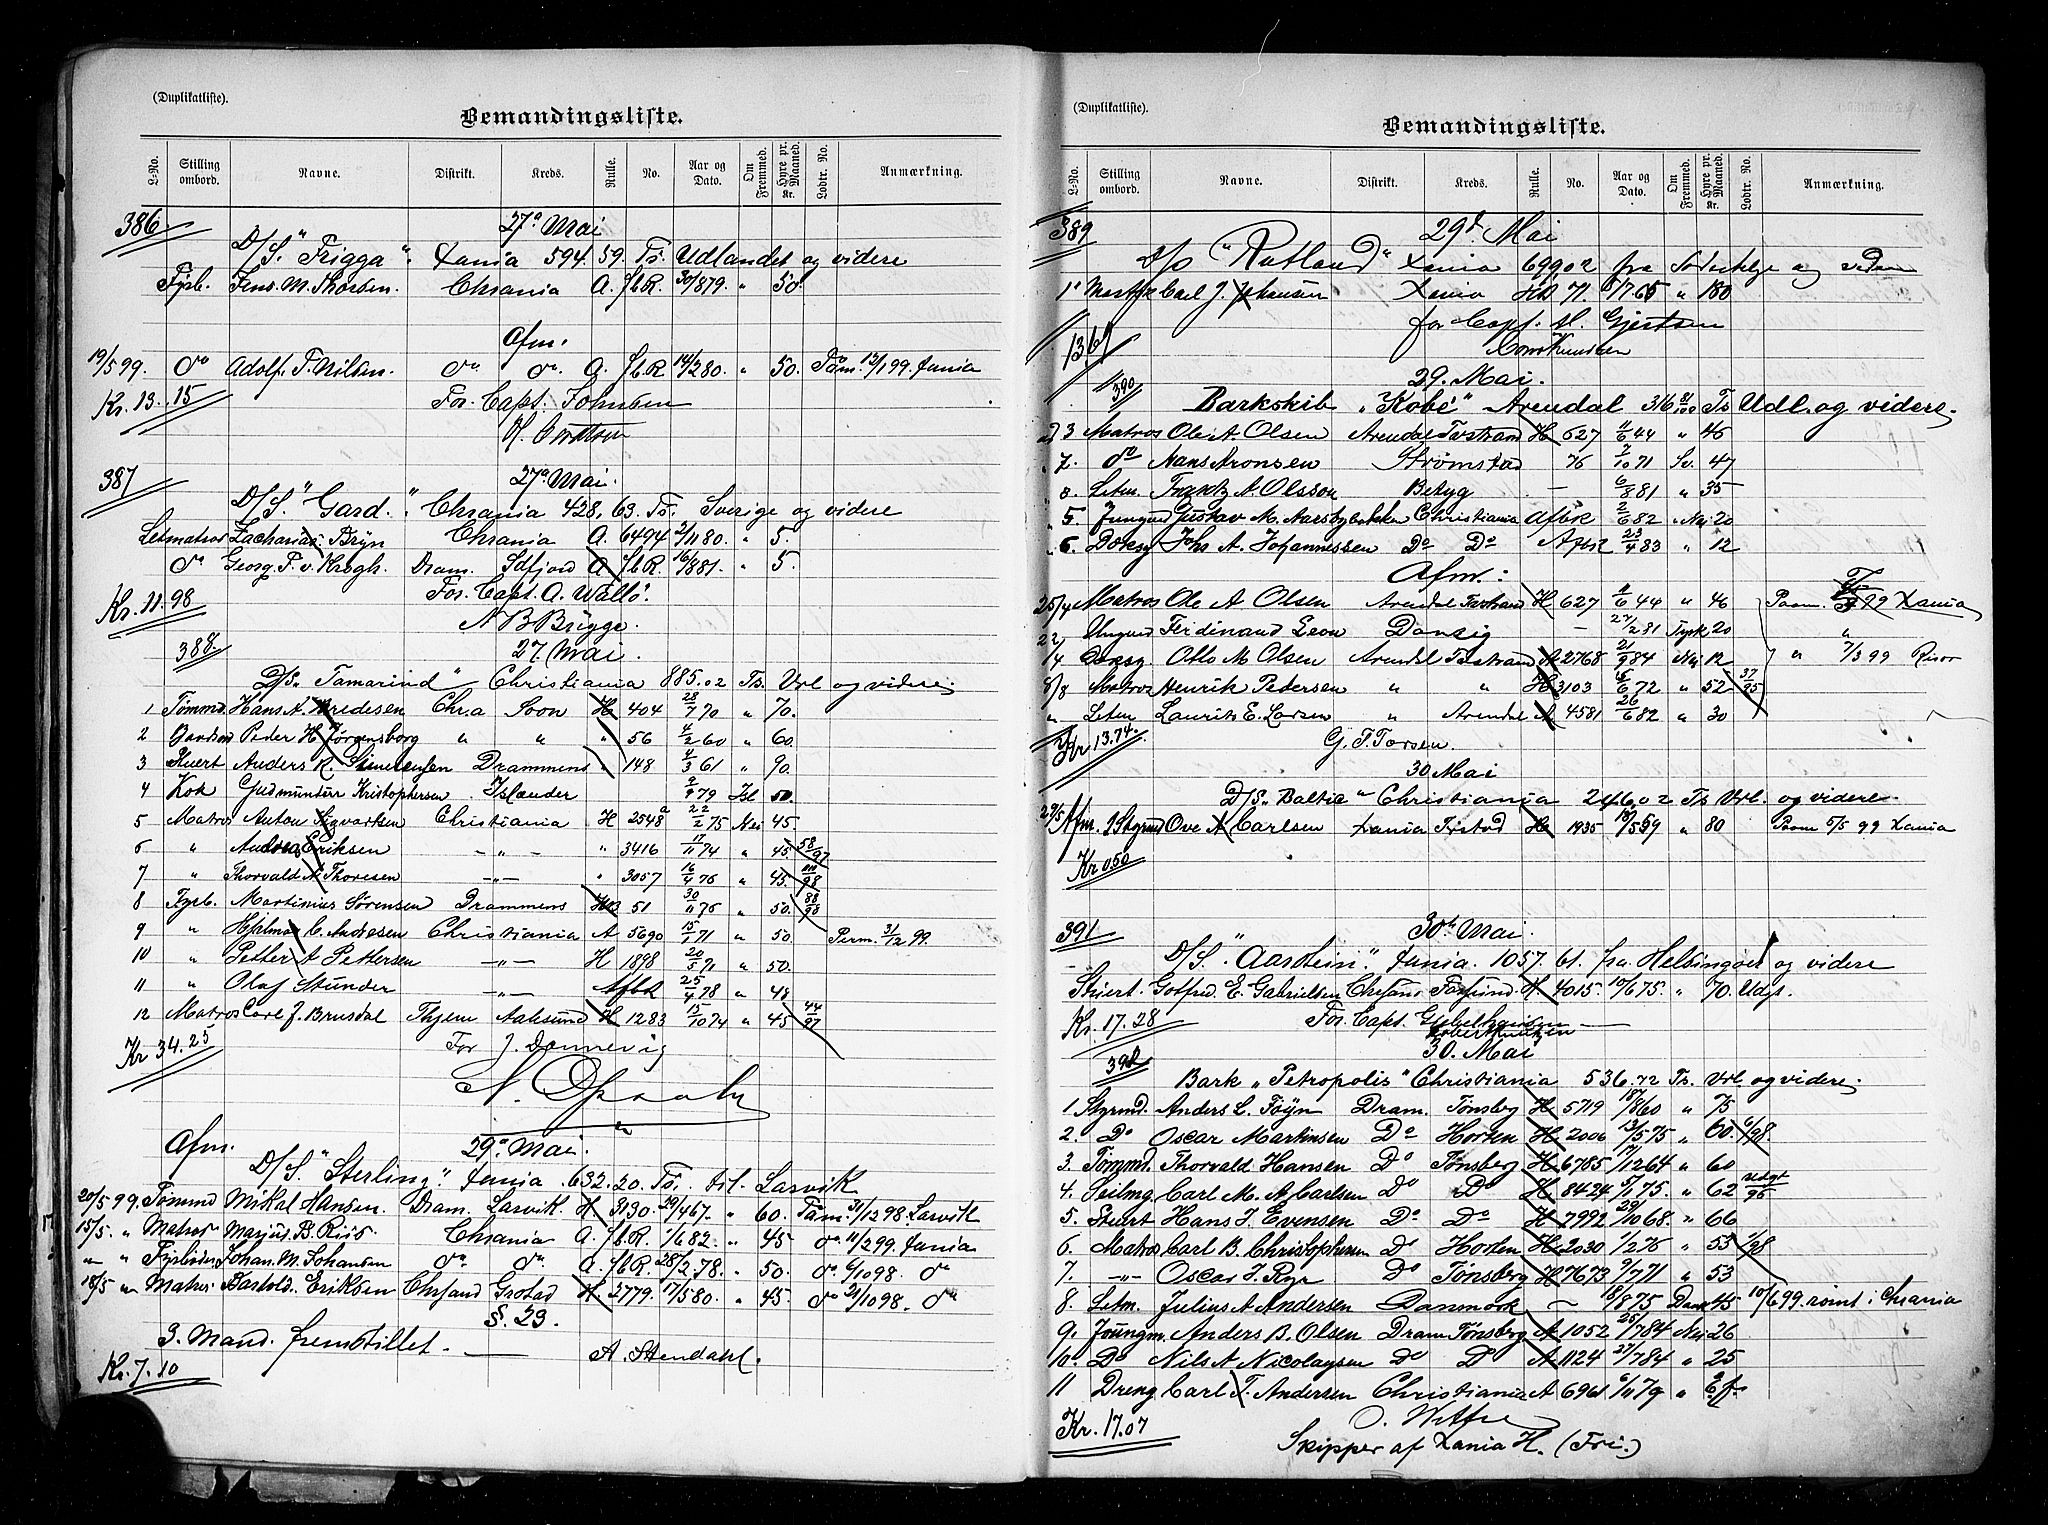 (Duplikatliste).
Bemandingsliste.
L-No. Stilling ombord. Navne. Distrikt. Kreds. Rulle. No. Aar og Dato. Om Fremmed. Hyre pr. Maaned. Kr. Lodtr. No. Anmærkning.
386 27de Mai
D/S. "Frigga". Xania 594.59. Ts. Udlandet og videre
Fyrb. Jens. M. Thorsen. Chrania A. fbR. 30/879. " 50.
Afm.
19/5 99. do Adolf. T. Nilsen. do do. A. fbR 14/280. " 50.
Kr. 13.15 For Capt. Johnsen
387 27de Mai.
D/S. "Gard." Chrania 428,63. Ts. Sverige og videre
Letmatros Zacharias Bryn Chrania A. 6494 2/1180. " 5.
do Georg. F. v. Krogh. Dram. A fbR. 16/881. " 5.
Kr. 11.98 For Capt. A. Wallø.
N B Brygge.
388. 27. Mai.
D/S. "Tamarind" Christiania 885.02 Ts. Url og videre.
1 Tømmd Hans A. Chr.a Soon H 404 28/7 70 " 70.
2 Peder H Jørgensborg " " " 56 2/2 60 " 60.
3 Stuert Anders R. Drammens " 148 4/3 61 " 90.
4 Kok Gudmundur Kristophersen Islænder 2/9 79 Isl 50.
5 Matro Anton Sigvartsen Christiania H 2548 2/2 75 Nei 45.
6 " Andreas Eriksen — " — " 3416 17/11 74 " 45 58/97
7 " Thorvald A Thoresen — " — " 3057 16/4 76 " 45.
8 Fyrb. Martinius Sørensen Drammens 51 30/11 76 " 50. 88/98
9 " Hjalmar C. Andresen Christiania A 5690 15/1 71 " 50. Perm. 31/12 99.
10 " Petter A Pettersen — " — H 1898 20/5 71 " 50.
11 " Olaf Stunder — " — Afbk 25/4 78 " 48
12 Matros Carl J. Brusdal Thjem Aalesund H 1283 15/10 74 " 45 44/97
Kr 34.25 For J. Dannevig
Afm. 29de Mai.
D/S. "Sterling". Xania. 632.20. Ts. til. Larvik
20/5 99. Tømmd Mikal Hansen. Dram. Larvik. H 3130. 29/467. " 60. Paam. 31/1298. Larvik
15/5. " Matros Marius B. Riis. Chrania A. fbR. 1/682. " 45 do 11/299. Xania
" " Fyrbøder Johan. M. Johansen do do. A. fbR. 28/2.78. " 50. do. 6/1098 do
18/5 " Matros Bartold. Eriksen Chrsand H 2779. 17/580. " 45. do 21/1098. do
§. 23.
3. Mand. fremstillet. — A. Stendahl.
Kr. 7.10
(Duplikatliste).
Bemandingsliste.
L-No. Stilling ombord. Navne. Distrikt. Kreds. Rulle. No. Aar og Dato. Om Fremmed. Hyre pr. Maaned. Kr. Lodtr. No. Anmærkning.
389 29d. Mai
D/S "Rutland" Xania 699.02 fra og videre
Carl J. Johansen Xania 71. " 180
for Capt. M. Gjertsen
390 29. Mai.
Barkskib "Kobé" Arendal 316 Ts Udl. og videre.
3 Matros Ole A. Olsen Arendal Tvstrand H 627 11/6 44 " 46
7. do Hans Aronsen Strømstad 76 2/10 71 Sv. 47
8. Letm. Frantz A. Olsson — 6/8 81 " 35
5. Gustav M. Christiania Afbk 2/6 82 " Nei 20
6. Dæksg Johs A. Johannessen Do Do Afbk 23/4 83 " 12
Afm.:
25/4 Matros Ole A Olsen Arendal Tvstrand H 627 11/6 44 " 46 Paam. 99 Xania
22/4 Ungmd Ferdinand Leon Danzig — 27/2 81 Tysk 20 "
Dæksg. Otto M. Olsen Arendal Tvstrand A 2768 21/9 84 Nei 12 " 7/3 99 Risør
8/8 Matros Henrik Pedersen " " H 3103 72 " 52 37/95
" Letm Laurits E. Larsen " Arendal A 4581 26/6 82 " 30
Kr 13.74. G. T. Torsen.
30 Mai
D/S. "Baltic" Christiania 246.02 Ts Url. og videre.
29/5 Afm. 1 Styrmd Ove A Carlsen Xania 1935 59 " 80 Paam 5/5 99 Xania
Kr 0.50
391 30de Mai.
D/S. "Aarstein". Xania. 1057.61. fra Helsingør og videre
Stuert. Gotfred. E. Gabrielsen Chrsand. Farsund. H. 4015. 10/675. " 70. Udgt.
Kr. 17.28 For Capt.
392 30. Mai
Bark "Petropolis" Christiania 536.72 Ts. Url. og videre.
1 Styrmd. Anders L. Føyn Dram. Tønsberg H 5719 18/860 " 75
2. Do Oscar Martinsen Do Horten H. 2006 13/575 " 60. 6/98.
3. Tømmd. Thorvald Hansen Do Tønsberg H 6785 17/1264 " 60
4. Seilmg. Carl M. A. Carlsen Do Do H 8424 5/175. " 62 udgt/96
5. Stuert Hans J. Evensen Do Do H 7992 29/1068. " 66
6. Matros Carl B. Christophersen Do Horten H 2030 1/276 " 53 1/98
7. — " — Oscar J. Rye Do Tønsberg H 7673 9/771 " 53
8. Letm. Julius A Andersen Danmark — 18/875 Dansk 45 10/6 99. rømt i Chrania
9. Joungm. Anders B. Olsen Dram Tønsberg A 1052 25/784 Nei 26
10. Do Nils A Nicolaysen Do Do A 1124 27/784 " 25
11 Dreng Carl F. Andersen Christiania A 6961 6/1179 "
Kr. 17.07
Skipper af Xania H. (Fri.)